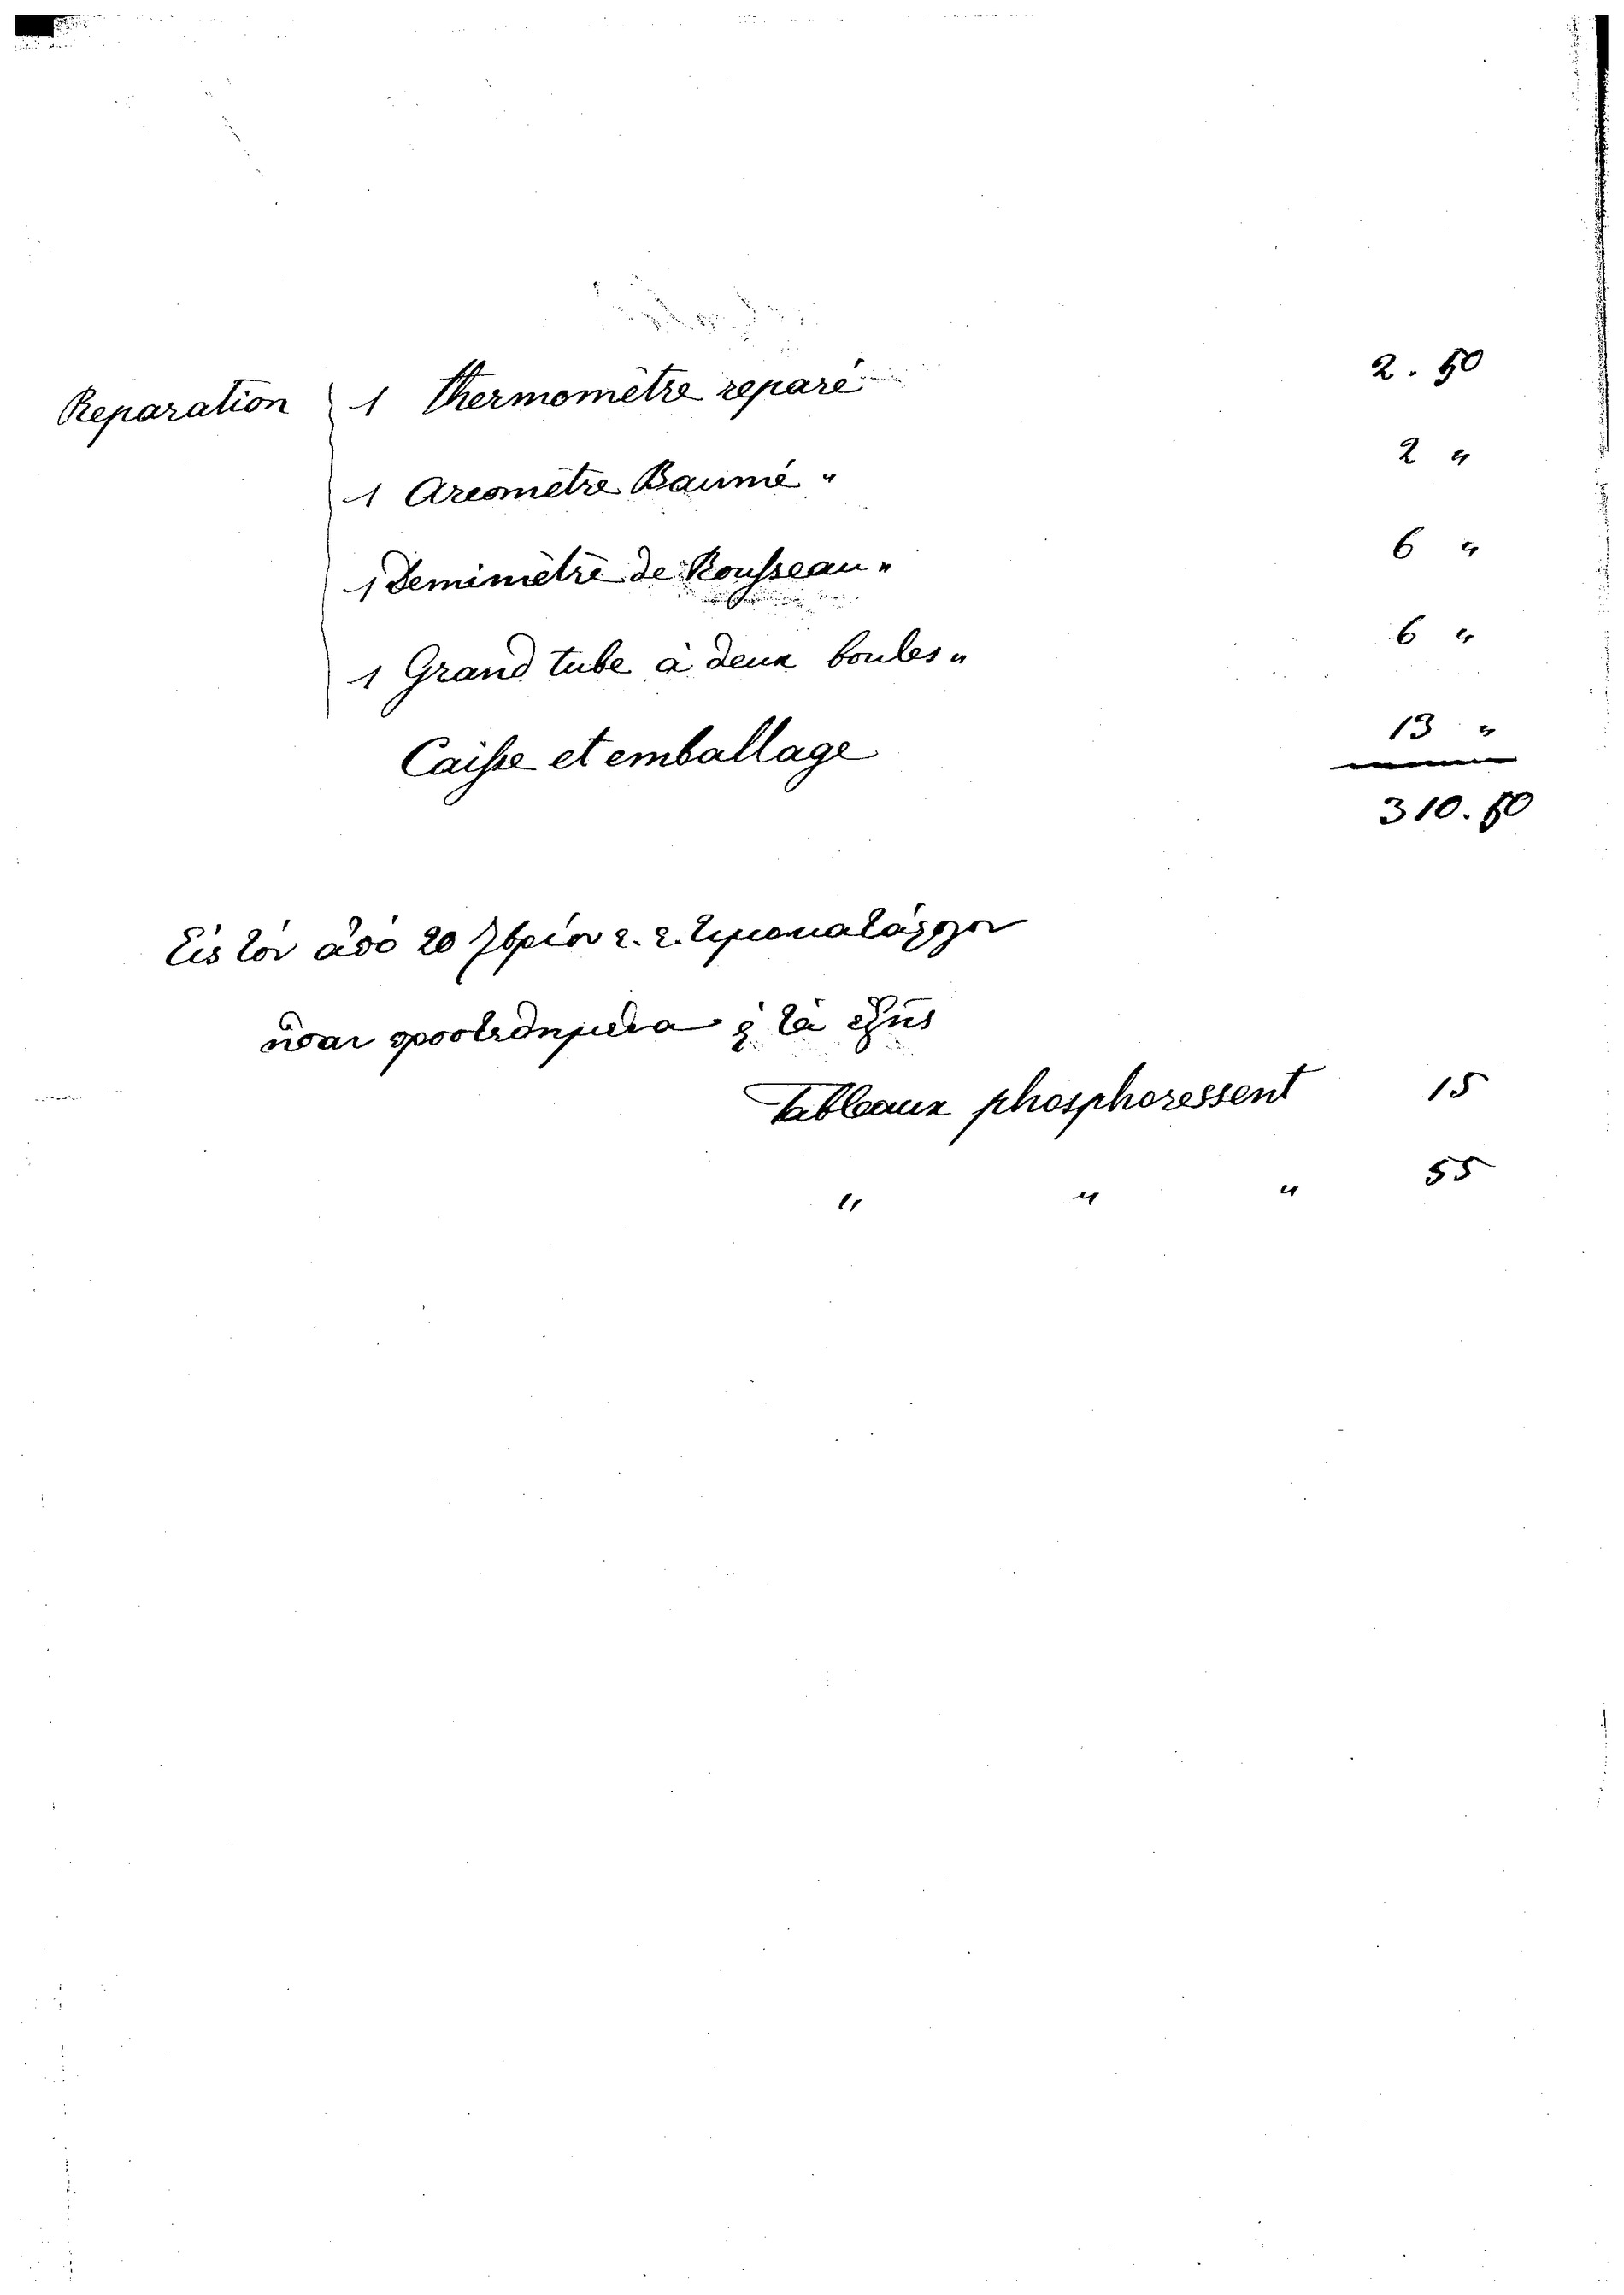 Reparation 1 Thermomètre reparé 2.50
1 Areomètre Baumé " 2 "
1 Demimètre de Rousseau " 6 "
1 Grand tube à deux boules " 6 "
Caisse et emballage 13 "
310.50
Εἰς τὸν ἀπὸ 20 7βρίου ἐ. ἔ. τιμοκατάλογον
ἦσαν προστεθημένα καὶ τὰ ἑξῆς
Tableaux phosphoressent 15
" " " 55